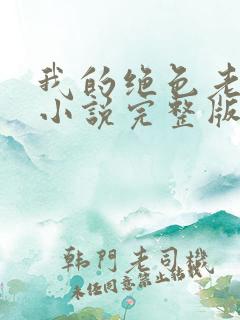 我的绝色老
小说完整版
韩門老司機
未任同意禁止转载